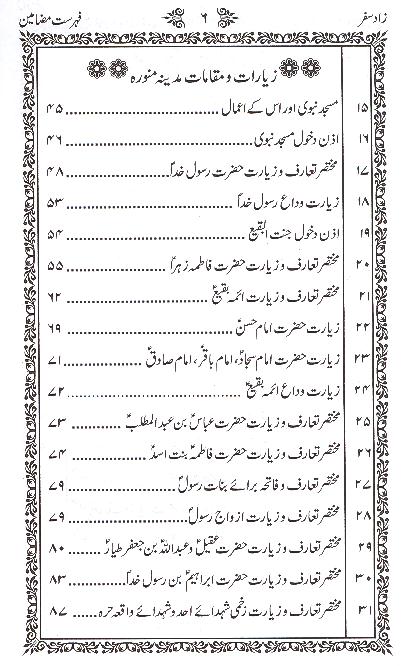 زاد سفر ۶ فہرست مضامین
زیارات و مقامات مدینہ منورہ
۱۵ مسجد نبوی اور اس کے اعمال ........ ۴۵
۱۶ اذن دخول مسجد نبوی ........ ۴۶
۱۷ مختصر تعارف و زیارت حضرت رسول خداؐ ........ ۴۸
۱۸ زیارت وداع رسول خداؐ ........ ۵۳
۱۹ اذن دخول جنت البقیع ........ ۵۴
۲۰ مختصر تعارف و زیارت حضرت فاطمہ زہراؑ ........ ۵۵
۲۱ مختصر تعارف و زیارت ائمہ بقیعؑ ........ ۶۲
۲۲ زیارت حضرت امام حسنؑ ........ ۶۹
۲۳ زیارت حضرت امام سجادؑ، امام باقرؑ، امام صادقؑ ........ ۷۱
۲۴ زیارت وداع ائمہ بقیعؑ ........ ۷۲
۲۵ مختصر تعارف و زیارت حضرت عباسؑ بن عبدالمطلبؑ ........ ۷۳
۲۶ مختصر تعارف و زیارت حضرت فاطمہؑ بنت اسدؑ ........ ۷۴
۲۷ مختصر تعارف و فاتحہ برائے بنات رسولؐ ........ ۷۹
۲۸ مختصر تعارف و زیارت ازواج رسولؐ ........ ۷۹
۲۹ مختصر تعارف و زیارت حضرت عقیلؑ و عبداللہؑ بن جعفر طیارؑ ........ ۸۰
۳۰ مختصر تعارف و زیارت حضرت ابراہیمؑ بن رسول خداؐ ........ ۸۳
۳۱ مختصر تعارف و زیارت زخمی شہدائے احد و شہدائے واقعہ حرہ ........ ۸۷